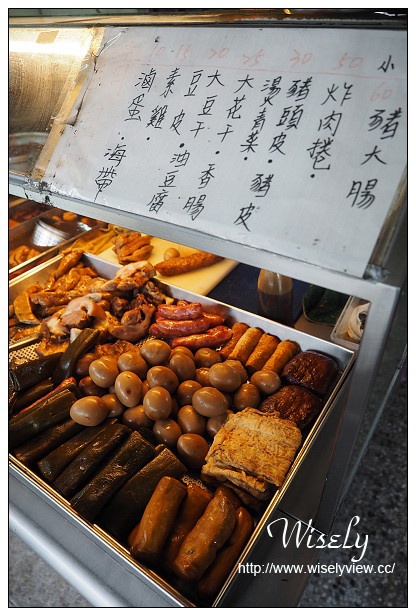 10 15 20 25 30 50 小
60
豬大腸
炸肉捲.
豬頭皮
燙青菜.豬皮
大花干
大豆干.香腸
豆皮.油豆腐
素雞.
滷蛋.海帶
Wisely
http://www.wiselyview.cc/